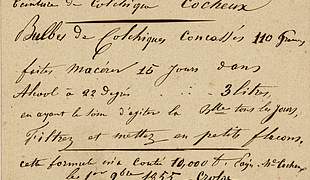 Teinture de Colchique Cocheux
Bulbes de Colchiques Concassés 110 Grams
faites Macérer 15 Jours dans
Alcool à 22 Degrés . . . 3 litres,
en ayant le soin d'agiter la Blle tous les Jours,
Filtrez et mettez en petits flacons,
cette formule m'a Couté 10,000 f. Mr Cocheux
le 1er 9bre 1855.